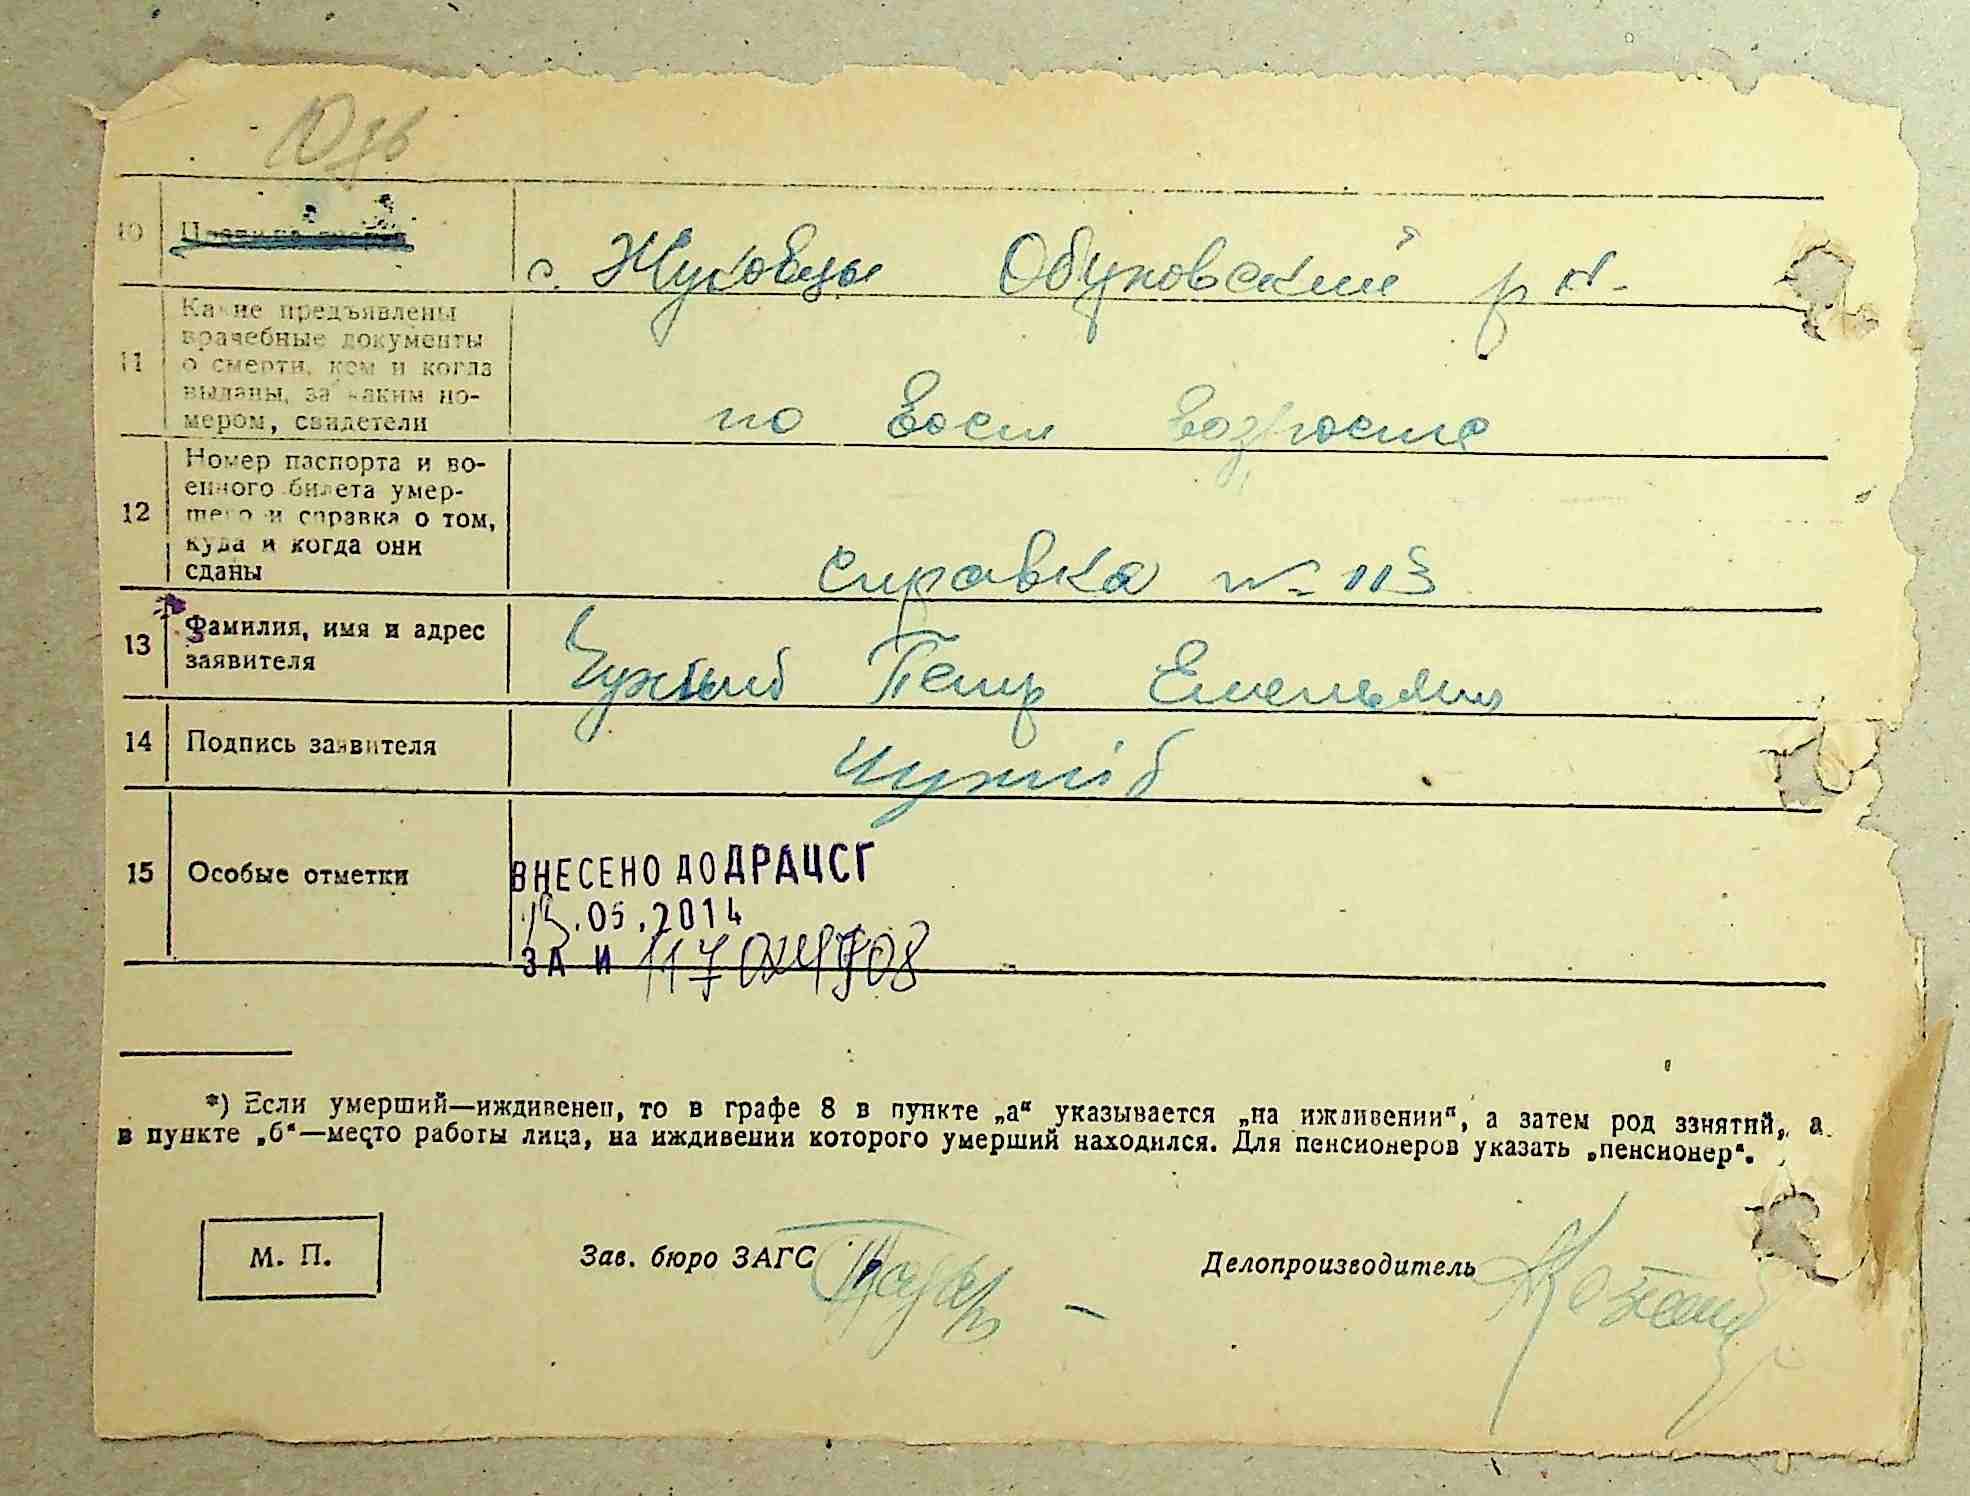 10
с. Жуковцы Обуховский р н.
11
Какие предъявлены
врачебные документы
о смерти, кем и когда
выданы, за каким но-
мером, свидетели
по
12
Номер паспорта и во-
енного билета умер-
шего и справка о том,
куда и когда они
сданы
справка № 113
13
Фамилия, имя и адрес
заявителя
Петр Емельян
14
Подпись заявителя
15
Особые отметки
ВНЕСЕНО ДО ДРАЦСГ
.05.2014
ЗА И
*) Если умерший—иждивенец, то в графе 8 в пункте „а“ указывается „на иждивении“, а затем род занятий, а
в пункте „б“—место работы лица, на иждивении которого умерший находился. Для пенсионеров указать „пенсионер“.
М. П.
Зав. бюро ЗАГС
Делопроизводитель